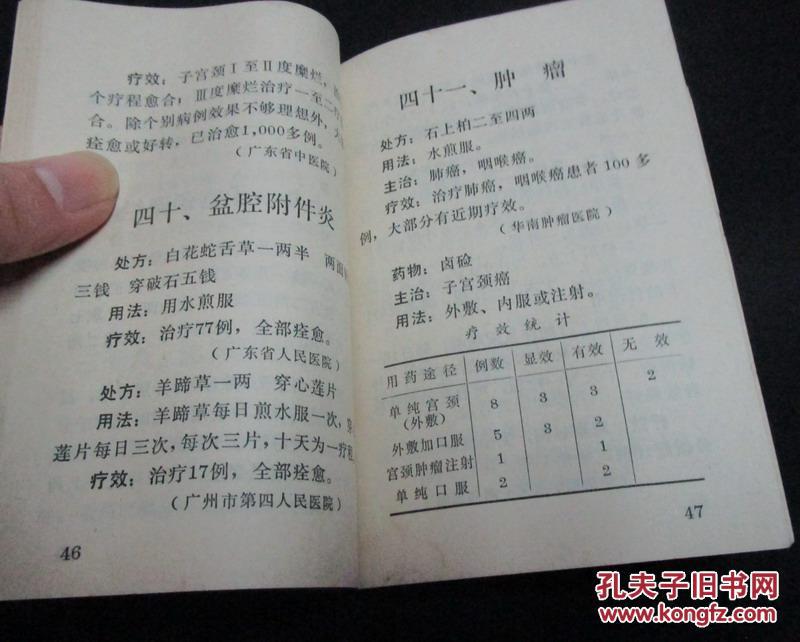 疗效：子宫颈Ⅰ至Ⅱ度糜烂，
个疗程愈合；Ⅲ度糜烂治疗一至二
合。除个别病例效果不够理想外，
痊愈或好转，已治愈1,000多例。
（广东省中医院）
四十、盆腔附件炎
处方：白花蛇舌草一两半 两面
三钱 穿破石五钱
用法：用水煎服
疗效：治疗77例，全部痊愈。
（广东省人民医院）
处方：羊蹄草一两 穿心莲片
用法：羊蹄草每日煎水服一次，
莲片每日三次，每次三片，十天为一疗程
疗效：治疗17例，全部痊愈。
（广州市第四人民医院）
46
四十一、肿瘤
处方：石上柏二至四两
用法：水煎服。
主治：肺癌，咽喉癌。
疗效：治疗肺癌，咽喉癌患者100多
例，大部分有近期疗效。
（华南肿瘤医院）
药物：卤硷
主治：子宫颈癌
用法：外敷、内服或注射。
疗效统计
用药途径 例数 显效 有效 无效
单纯宫颈（外敷） 8 3 3 2
外敷加口服 5 3 2
宫颈肿瘤注射 1 1
单纯口服 2 2
47
孔夫子旧书网
www.kongfz.com